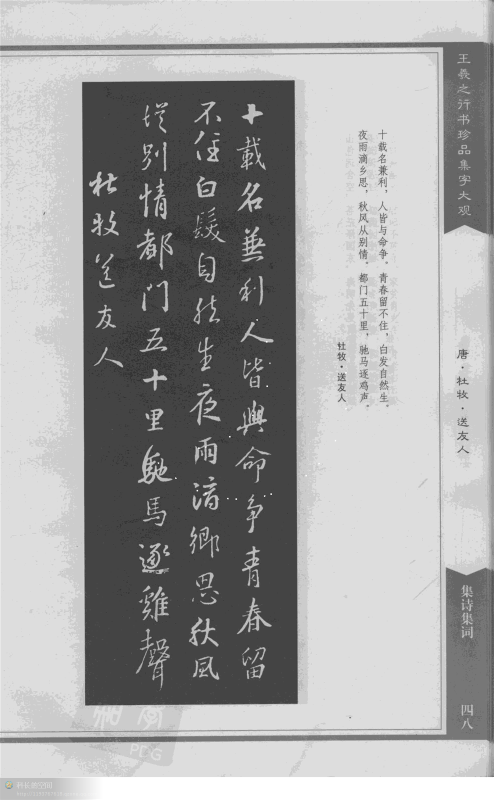 王羲之行书珍品集字大观
唐·杜牧·送友人
集诗集词
四八
十载名兼利，人皆与命争。青春留不住，白发自然生。
夜雨滴乡思，秋风从别情。都门五十里，驰马逐鸡声。
杜牧·送友人
十載名兼利人皆與命爭青春留
不住白髮自然生夜雨滴鄉思秋風
從別情都門五十里馳馬逐雞聲
杜牧送友人
PDG